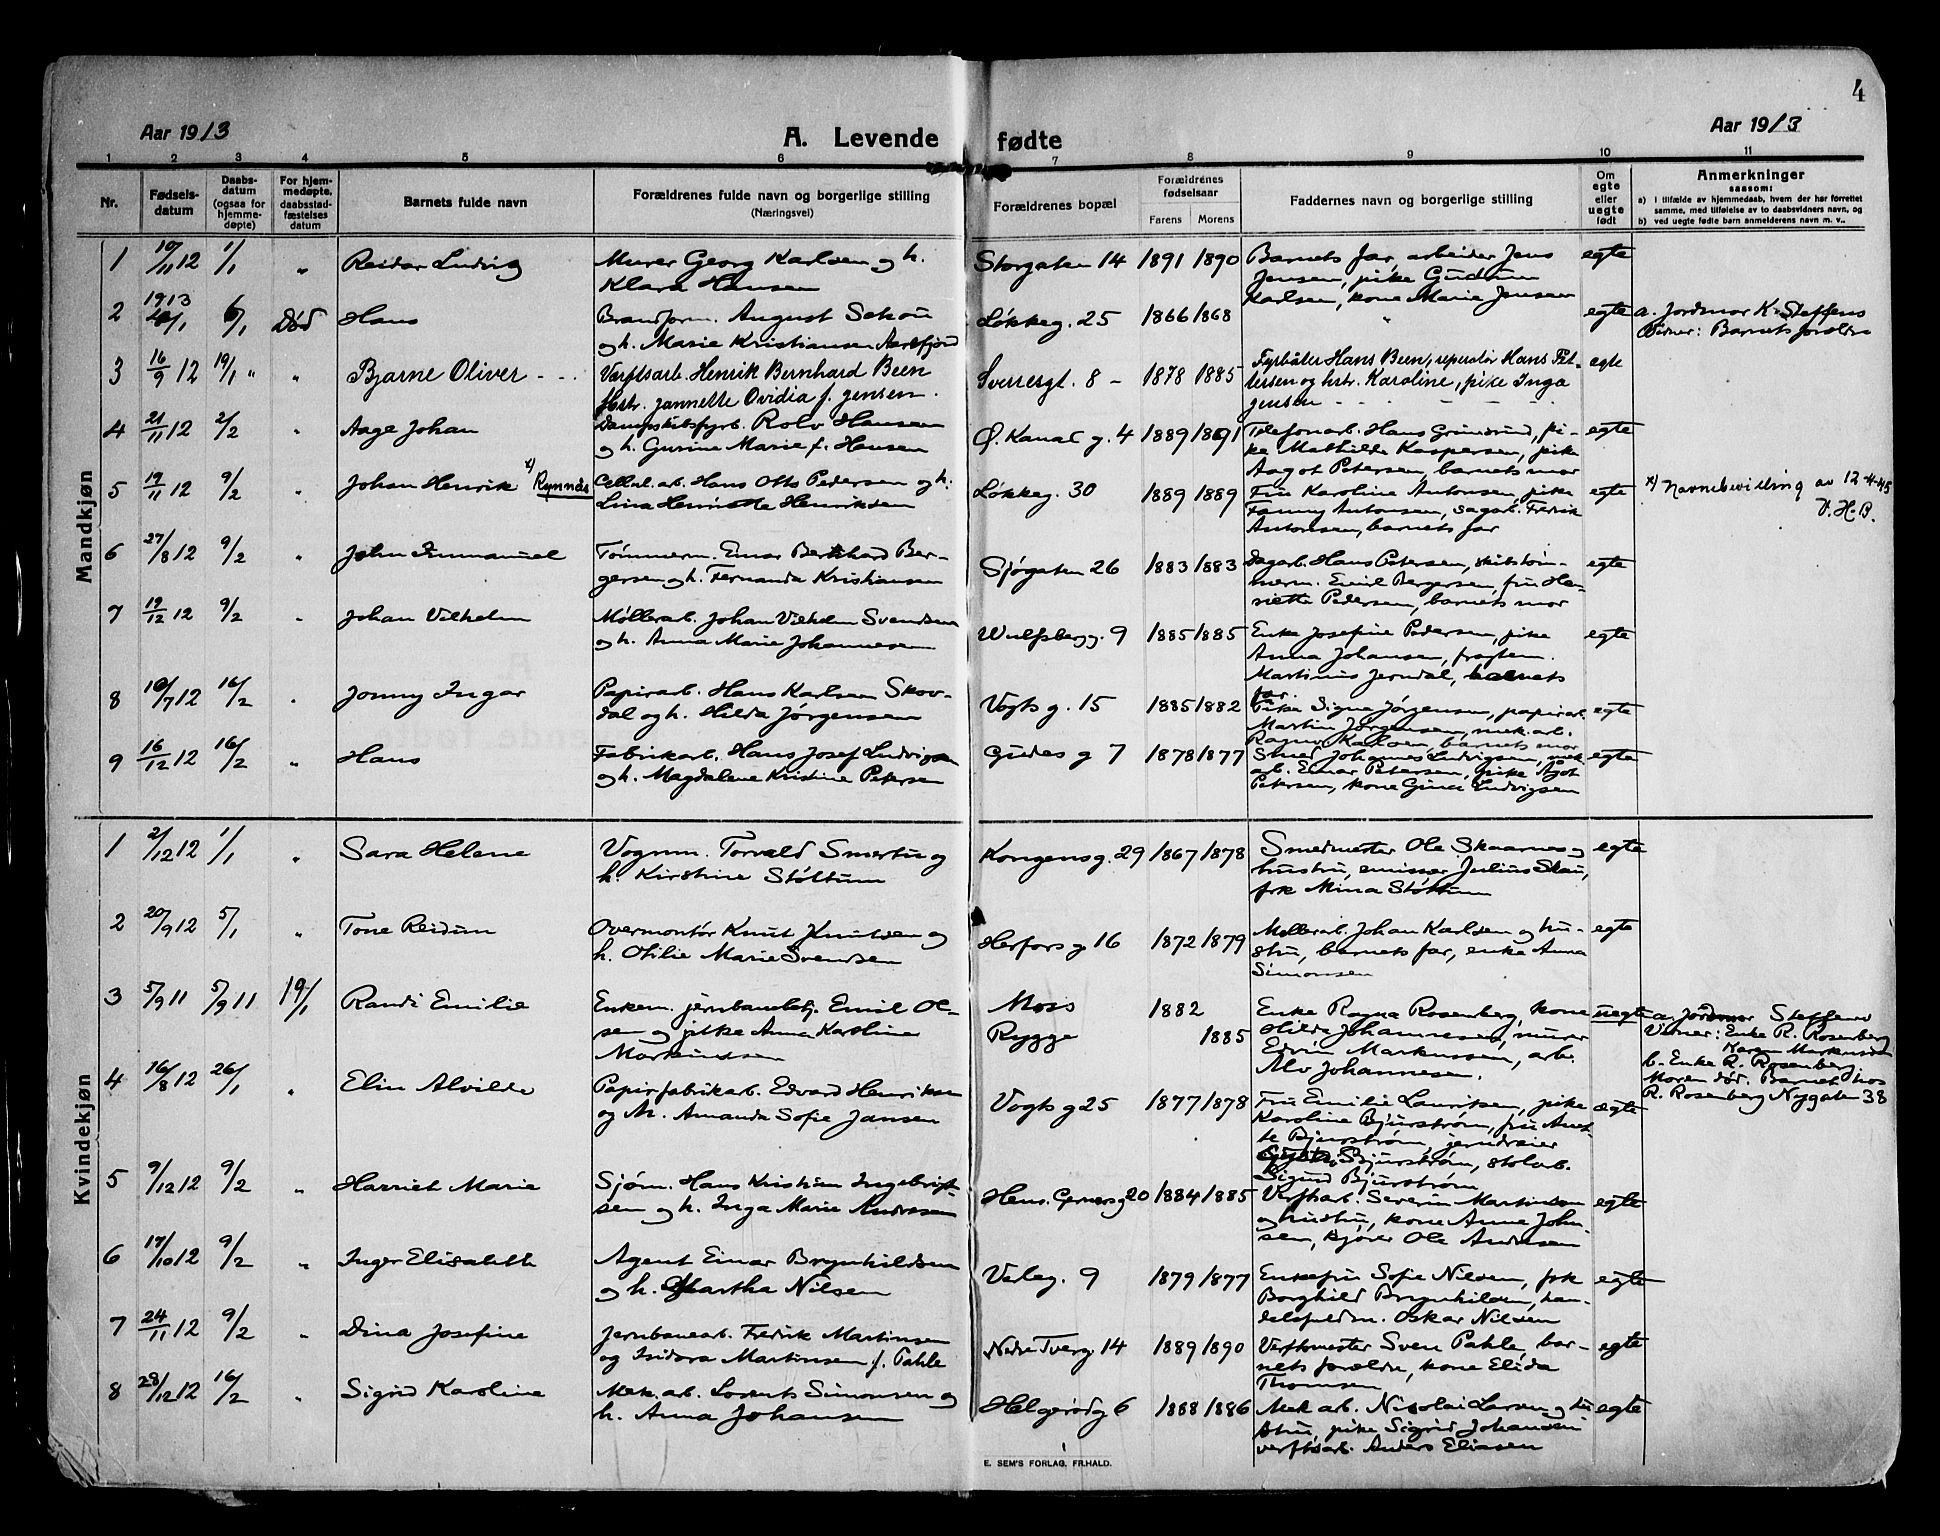 4
Aar 1913
A. Levende fødte
Aar 1913
1 2 3 4 5 6 7 8 9 10 11
Nr.
Fødselsdatum
Daabsdatum (ogsaa for hjemmedøpte)
For hjemmedøpte, daabsstadfæstelses datum
Barnets fulde navn
Forældrenes fulde navn og borgerlige stilling (Næringsvei)
Forældrenes bopæl
Forældrenes fødselsaar
Farens Morens
Faddernes navn og borgerlige stilling
Om egte eller uegte født
Anmerkninger
saasom:
a) I tilfælde av hjemmedaab, hvem der har forrettet samme, med tilføielse av to daabsvidners navn, og
b) ved uegte fødte barn anmelderens navn m. v..
Mandkjøn
1 10/11 12 1/1 „ Reidar Ludvig Murer Georg Karlsen og h. Storgaten 14 1891 1890 Barnets far, arbeider Jens egte
Klara Hansen Jensen, pike Gudrun
Karlsen, kone Marie Jensen
1913
2 6/1 Død Hans Brandform. August Schou Løkkeg. 25 1866 1868 „ egte a. Jordmor K. Steffens
og h. Marie Kristiansen Barnets forældre
3 16/9 12 19/1 „ „ Bjarne Oliver Værftsarb. Henrik Bernhard Been Sverresgt. 8 1878 1885 Fyrbøter Hans Been, reperatør Hans Pet- egte
hstr. Jannette Ovidia f. Jensen. tersen og hstr. Karoline, pike Inga
Jensen
4 21/11 12 2/2 „ Aage Johan Dampskibsfyrb. Rolv Hansen Ø. Kanal g. 4 1889 1891 Telefonarb. Hans Grimsrud, pi- egte
og h. Gurine Marie f. Hansen ke Mathilde Kaspersen, pike
Aagot Petersen, barnets mor
5 19/11 12 9/2 „ Johan Henrik x) Rynnås Cellul. arb. Hans Otto Pedersen og h. Løkkeg. 30 1889 1889 Fru Karoline Antonsen, pike egte x) Navnebevilling av 12-4-45
Lina Henriette Henriksen Fanny Antonsen, sagarb. Fredrik V.H.B.
Antonsen, barnets far
6 27/8 12 9/2 „ John Immanuel Tømmerm. Einar Bernhard Ber- Sjøgaten 26 1883 1883 Dagarb. Hans Petersen, skibstøm- egte
gersen og h. Fernanda Kristiansen merm. Emil Bergersen, fru Hen-
riette Pedersen, barnets mor
7 19/12 12 9/2 „ Johan Vilhelm Møllerarb. Johan Vilhelm Svendsen Wulfsbergg. 9 1885 1885 Enke Josefine Pedersen, pike egte
og h. Anna Marie Johannesen Anna Johansen, fragtem.
Martinius Jerndal, barnets
far.
8 10/7 12 16/2 „ Jonny Ingar Papirarb. Hans Karlsen Skov- Vogts g. 15 1885 1882 Pike Signe Jørgensen, papirarb. egte
dal og h. Hilda Jørgensen Martin Jørgensen, mek. arb.
Ragnv. Karlsen, barnets mor
9 16/12 12 16/2 „ Hans Fabrikarb. Hans Josef Ludvigsen Gudes g 7 1878 1877 Smed Johannes Ludvigsen, mek. egte
og h. Magdalene Kristine Petersen arb. Einar Petersen, pike Agot
Petersen, kone Gina Ludvigsen
Kvindekjøn
1 2/12 12 1/1 „ Sara Helene Vognm. Torvald Smertu og Kongens g. 29 1867 1878 Smedmester Ole Skaarnes og egte
h. Kirstine Støttum hustru, emissær Julius Skau,
frk Mina Støttum
2 20/9 12 5/1 „ Tone Reidun Overmontør Knut Knutsen og Herfors g 16 1872 1879 Møllerarb. Johan Karlsen og hu- egte
h. Otilie Marie Svendsen stru, barnets far, enke Anna
Simonsen
3 5/9 11 5/9 11 19/1 Randi Emilie Enkem. jernbanebtj. Emil Ol- Moss 1882 Enke Ragna Rosenberg, kone uegte a. Jordmor Steffens
sen og pike Anna Karoline Rygge 1885 Hilda Johannesen, murer Vidner: Enke R. Rosenberg
Markussen Edvin Markussen, arb. Karen Markussen
Alv Johannesen. b. Enke R. Rosenberg
Moren død. Barnet hos
R. Rosenberg Nygaten 38
4 16/8 12 26/1 „ Elin Alvilde Papirfabrikarb. Edvard Henriksen Vogts g 25 1877 1878 Fru Emilie Lauritsen, pike ægte
og h. Amanda Sofie Jansen Karoline Bjurstrøm, fru Anet-
te Bjurstrøm, jerndreier
Bjurstrøm, stolarb.
Sigurd Bjurstrøm
5 9/12 12 9/2 „ Harriet Marie Sjøm. Hans Kristian Ingebrigt- Hens. Gernersg 20 1884 1885 Verftsarb. Severin Martinsen egte
sen og h. Inga Marie Andresen og hustru, kone Anne John-
sen, kjører Ole Andresen
6 17/10 12 9/2 „ Inger Elisabeth Agent Einar Brynhildsen Valeg. 9 1879 1877 Enkefru Sofie Nilsen, frk egte
og h. Martha Nilsen Borghild Brynhildsen, han-
delsfuldm. Oskar Nilsen
7 24/11 12 9/2 „ Dina Josefine Jernbanearb. Fredrik Martinsen Nedre Tverg 14 1889 1890 Verftsmester Sven Pahle, bar- egte
og Isidora Martinsen f. Pahle nets forældre, kone Elida
Thomsen
8 28/12 12 16/2 „ Sigrid Karoline Mek. arb. Lorents Simonsen og Helgerødg 6 1888 1886 Mek arb. Nicolai Larsen og hu egte
h. Anna Johansen stru, pike Sigrid Johansen
verftsarb. Anders Eliasen
E. SEM'S FORLAG, FR.HALD.